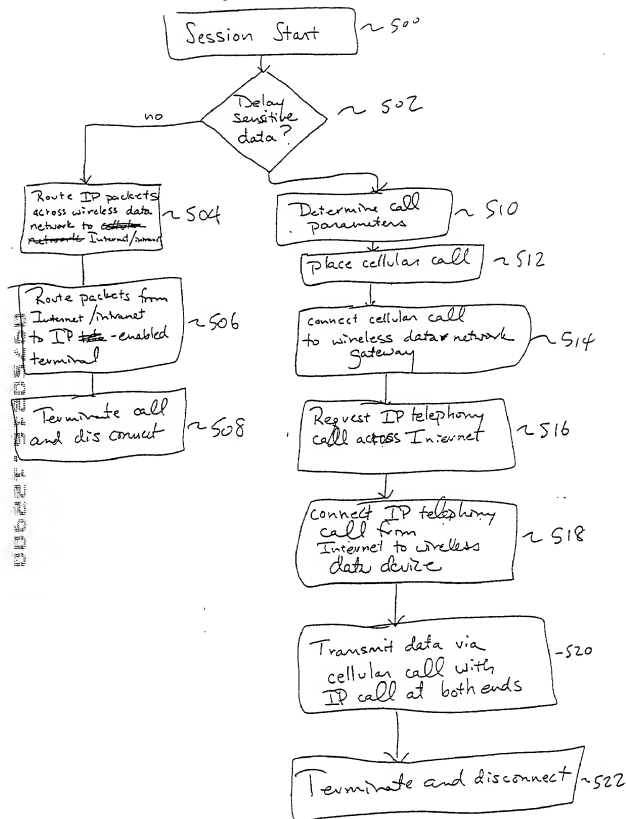 Session Start ~ 500
Delay
sensitive
data?
~ 502
no
Route IP packets
across wireless data
network to cellular
network Internet/intranet
~ 504
Route packets from
Internet/intranet
to IP -enabled
terminal
~ 506
Terminate call
and disconnect
~ 508
Determine call
parameters
~ 510
Place cellular call
~ 512
connect cellular call
to wireless data network
gateway
~ 514
Request IP telephony
call across Internet
~ 516
connect IP telephony
call from
Internet to wireless
data device
~ 518
Transmit data via
cellular call with
IP call at both ends
-520
Terminate and disconnect
~522